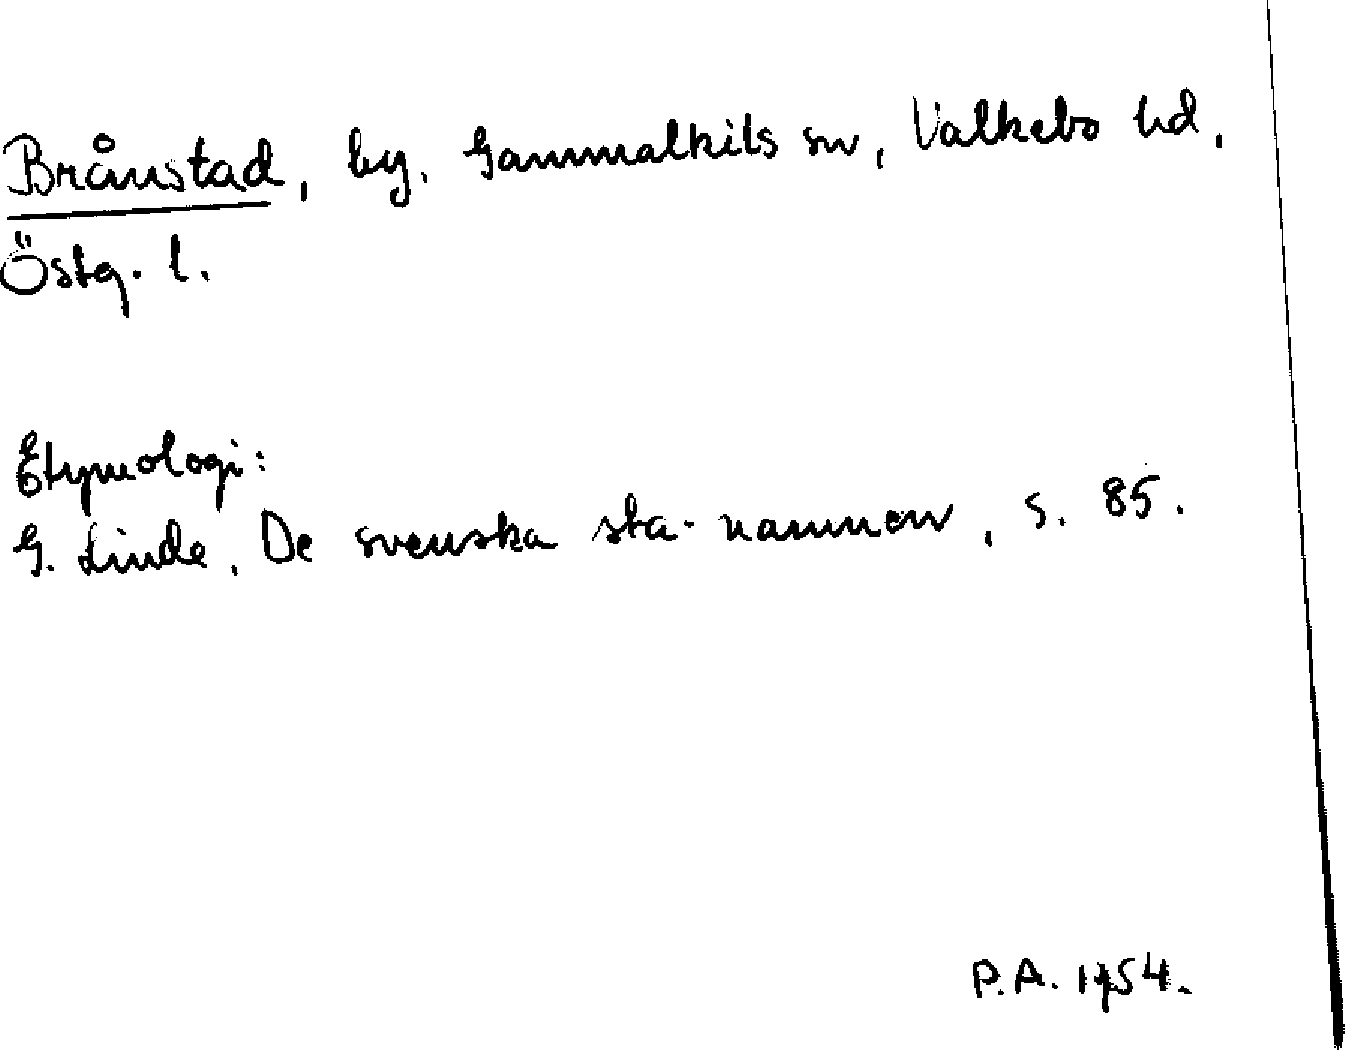 Brånstad, by, Gammalkils sn, Valkebo hd,
Östg. l.
Etymologi:
G. Linde, De svenska sta-namnen, s. 85.
P.A. 1954.